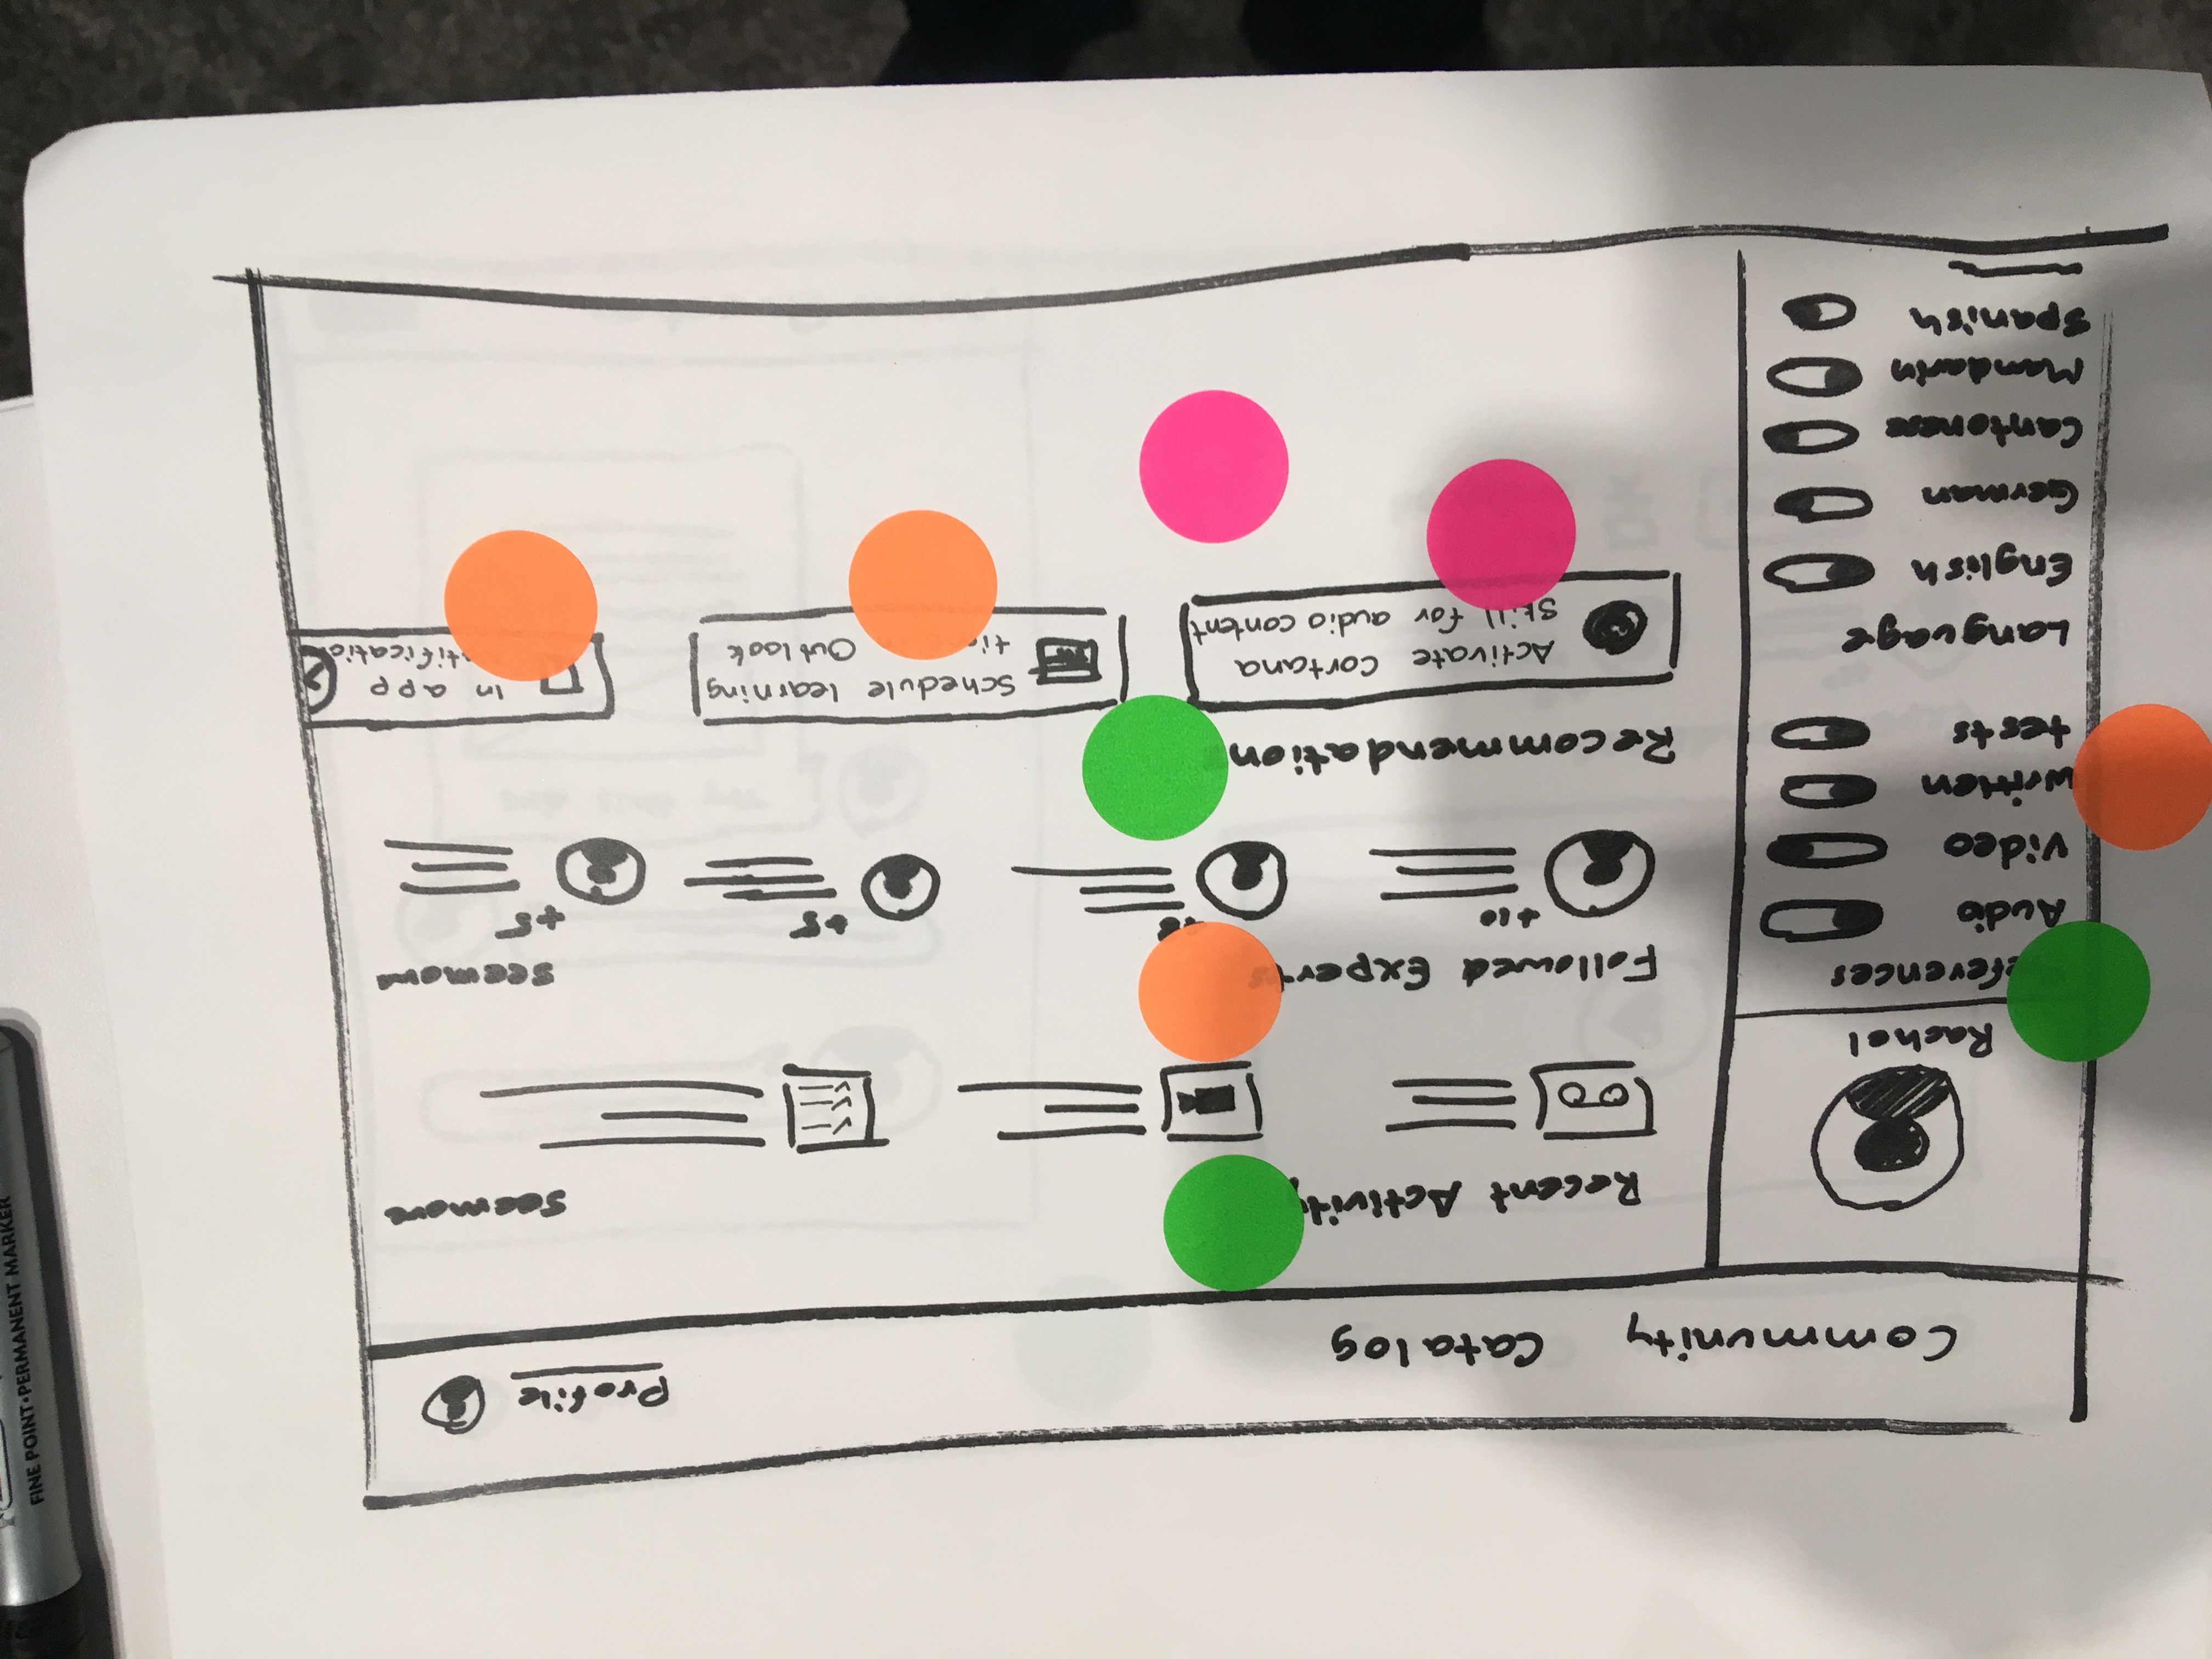 Community Catalog Profile
Rachel
Audio
Video
written
tests
Language
English
German
Cantonese
Mandarin
Spanish
Recent Activity
seemore
Followed Experts
seemore
+10
+5
+5
Recommendation
Activate Cortana
skill for audio content
Schedule learning
Outlook
In app
FINE POINT•PERMANENT MARKER